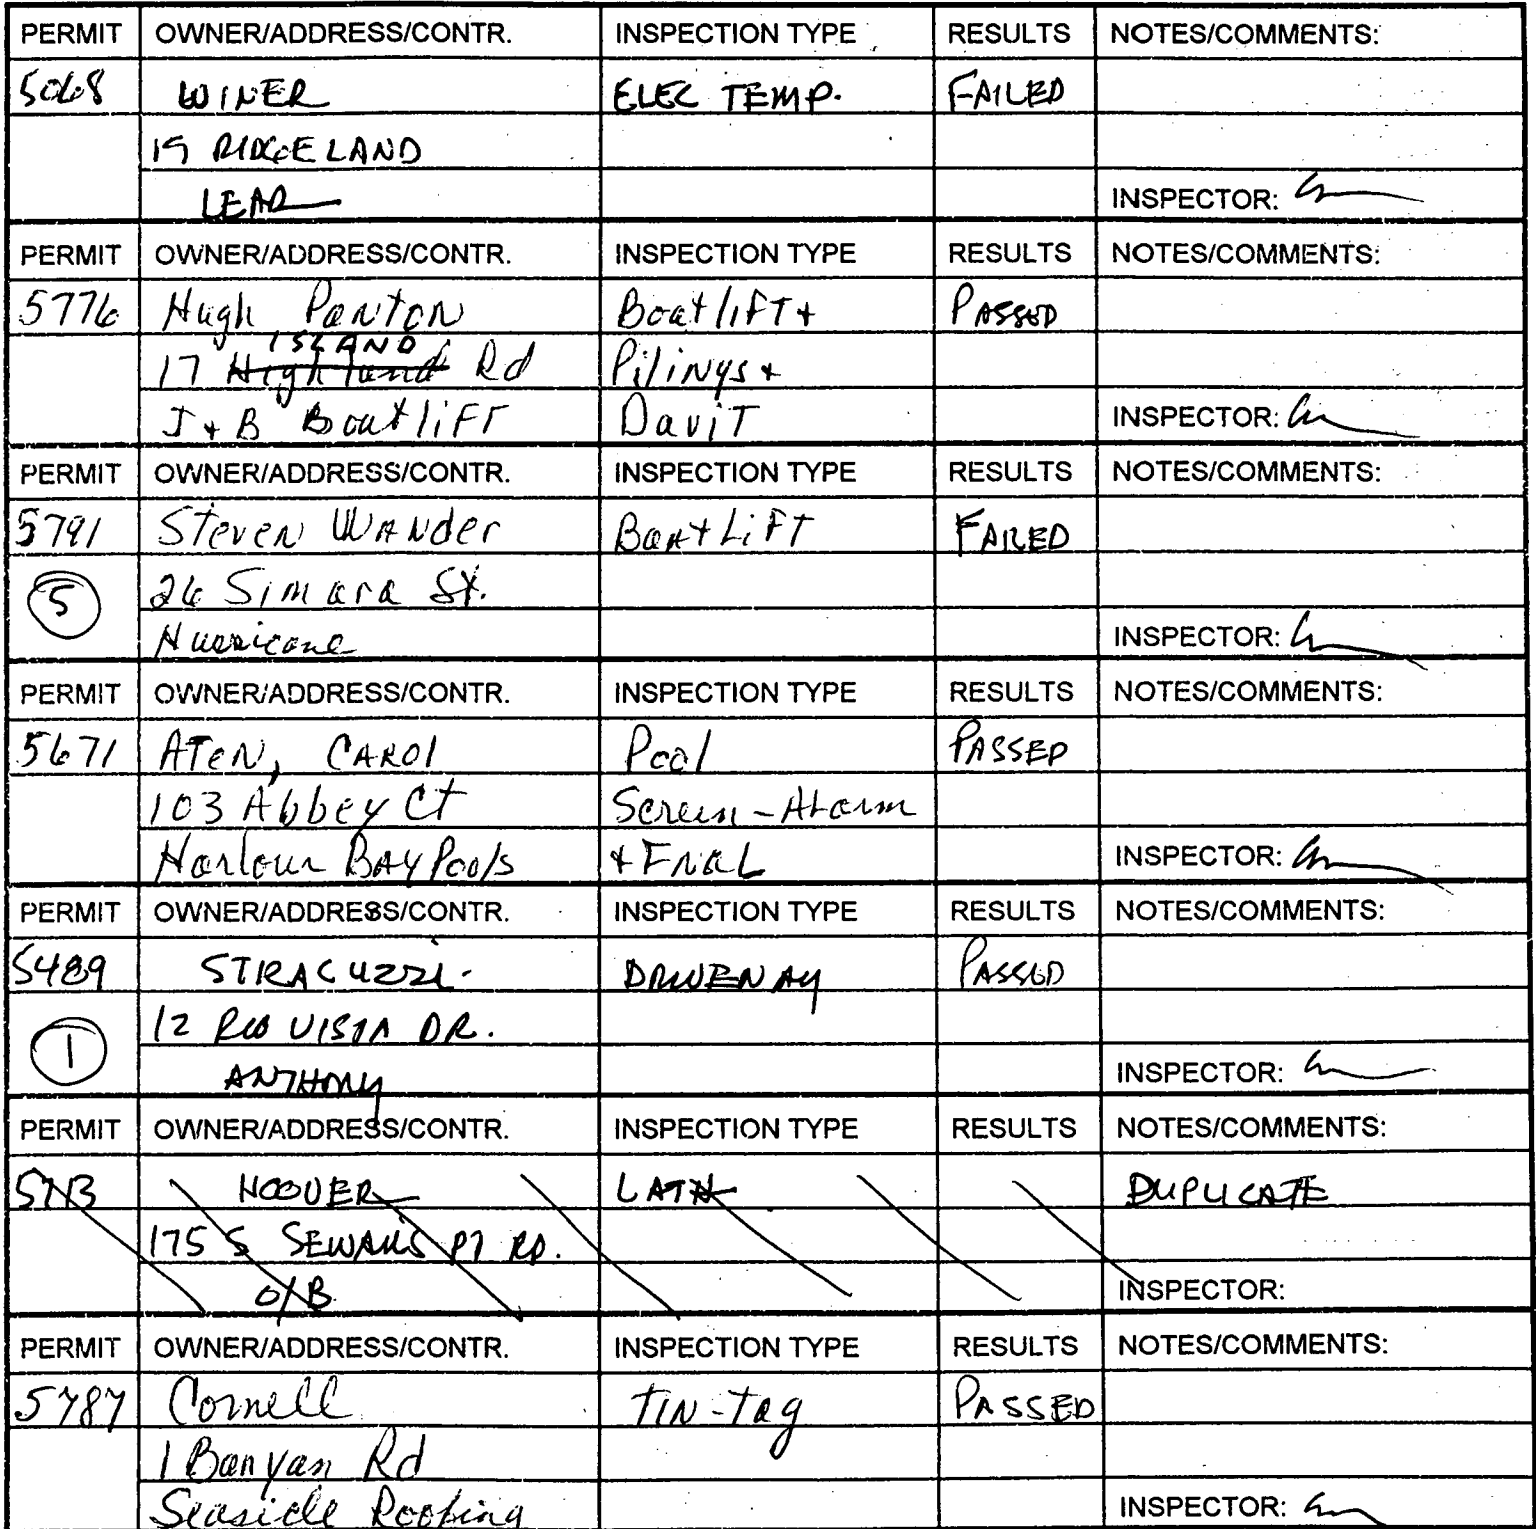 PERMIT OWNER/ADDRESS/CONTR. INSPECTION TYPE RESULTS NOTES/COMMENTS:
5068 WINER ELEC TEMP. FAILED
19 RIDGELAND
LEAR INSPECTOR:
PERMIT OWNER/ADDRESS/CONTR. INSPECTION TYPE RESULTS NOTES/COMMENTS:
5776 Hugh Panton Boatlift + PASSED
ISLAND
17 Highland Rd Pilings +
J + B Boatlift Davit INSPECTOR:
PERMIT OWNER/ADDRESS/CONTR. INSPECTION TYPE RESULTS NOTES/COMMENTS:
5791 Steven Wander Boat Lift FAILED
5 26 Simara St.
Hurricane INSPECTOR:
PERMIT OWNER/ADDRESS/CONTR. INSPECTION TYPE RESULTS NOTES/COMMENTS:
5671 Aten, Carol Pool PASSED
103 Abbey Ct Screen - Alarm
Harbour Bay Pools + Fnal INSPECTOR:
PERMIT OWNER/ADDRESS/CONTR. INSPECTION TYPE RESULTS NOTES/COMMENTS:
5489 STRACUZZI. DRIVEWAY PASSED
1 12 RIO VISTA DR.
ANTHONY INSPECTOR:
PERMIT OWNER/ADDRESS/CONTR. INSPECTION TYPE RESULTS NOTES/COMMENTS:
5713 HOOVER LATH DUPLICATE
175 S SEWALL'S PT RD.
O/B INSPECTOR:
PERMIT OWNER/ADDRESS/CONTR. INSPECTION TYPE RESULTS NOTES/COMMENTS:
5787 Cornell TIN-Tag PASSED
1 Banyan Rd
Seaside Roofing INSPECTOR: